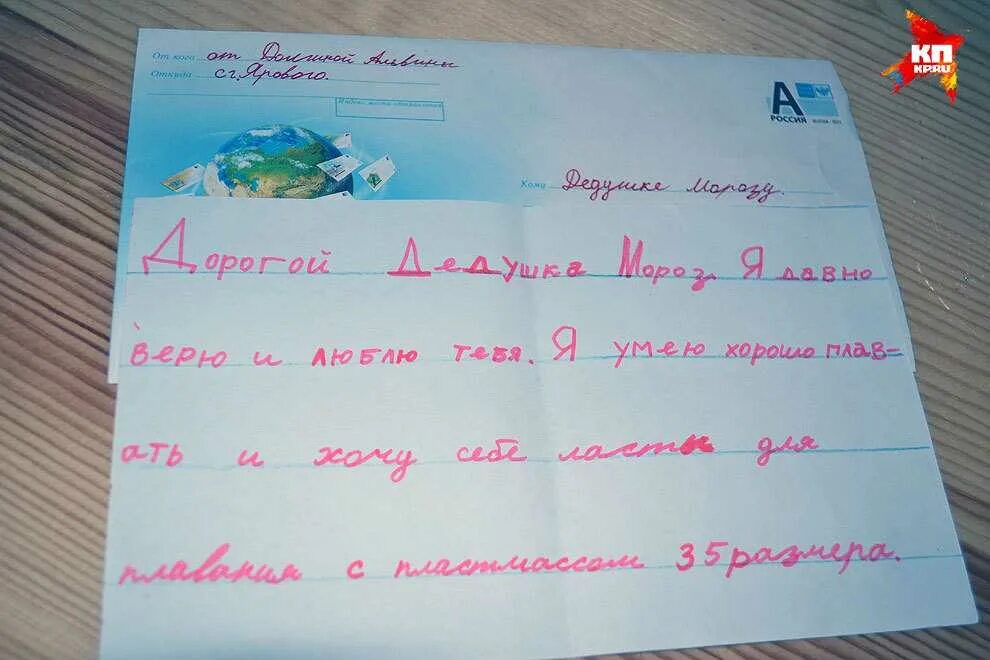 КП
KP.RU
От кого от Алевины
Откуда с г. Ярового.
А
РОССИЯ
Кому Дедушке Морозу.
Дорогой Дедушка Мороз. Я давно
верю и люблю тебя. Я умею хорошо плав=
ать и хочу себе ласты для
плавания с пластмассом 35 размера.